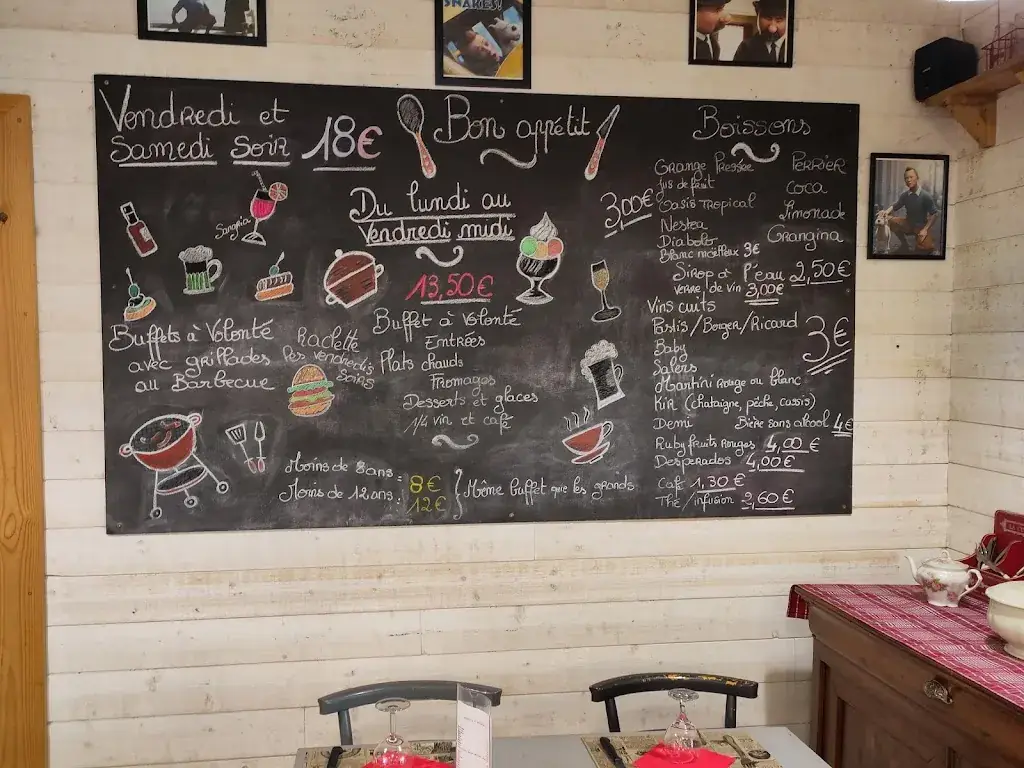 SNAKES!
Vendredi et
Samedi Soir 18€
Bon appétit
Sangria
Buffets à Volonté
avec grillades
au Barbecue
Raclette
Les vendredis
Soirs
Du lundi au
Vendredi midi
13,50€
Buffet à Volonté
Entrées
Plats chauds
Fromages
Desserts et glaces
1/4 vin et café
Moins de 8 ans = 8€
Moins de 12 ans : 12€
Même buffet que les grands
Boissons
3,00€
Orange Pressée
Jus de fruit
Oasis Tropical
Nestea
Diabolo
PERRIER
COCA
Limonade
Orangina
Blanc moelleux 3€
Sirop à l'eau 2,50€
verre de vin 3,00€
Vins cuits
Pastis/Berger/Ricard
3€
Baby
Salers
Martini Rouge ou blanc
Kir (Chataigne, pêche, cassis)
Demi Bière sans alcool 4€
Ruby fruits Rouges 4,00€
Desperados 4,00€
Café 1,30€
Thé/infusion 2,60€